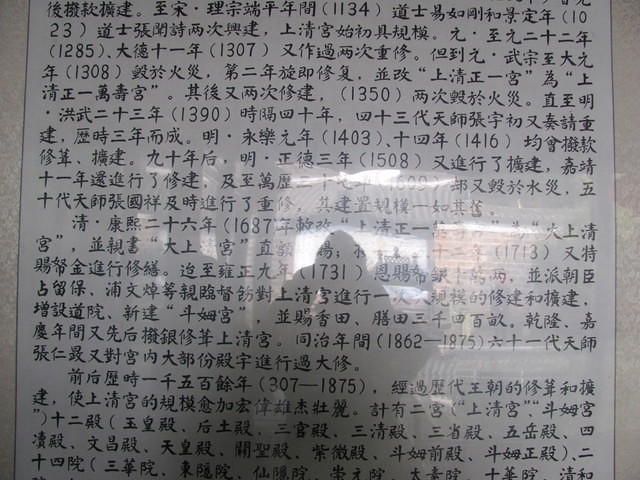 後撥款擴建。至宋·理宗端平年間(1134)道士易如剛和景定年(10
23)道士張聞詩两次興建，上清宮始初具規模。元·至元二十二年
(1285)、大德十一年(1307)又作過两次重修。但到元·武宗至大元
年(1308)毀於火災，第二年旋即修复，並改“上清正一宮”為“上
清正一萬壽宮”。其後又两次修建，(1350)两次毀於火災。直至明
·洪武二十三年(1390)時隔四十年，四十三代天師張宇初又奏請重
建，歷時三年而成。明·永樂元年(1403)、十四年(1416)均曾撥款
修葺、擴建。九十年后，明·正德三年(1508)又進行了擴建，嘉靖
十一年還進行了修建，及至萬歷三十七年(1609)却又毀於水災，五
十代天師張國祥及時進行了重修，其建置規模一如其舊。
清·康熙二十六年(1687年敕改“上清正一萬壽宮”為“大上清
宮”，並親書“大上清宮”直額 十二年(1713)又特
賜帑金進行修繕。迨至雍正九年(1731)恩賜帑銀十萬两，並派朝臣
占留保、浦文焯等親臨督飭對上清宮進行一次大規模的修建和擴建，
增設道院，新建“斗姆宮”，並賜香田、膳田三千四百畝。乾隆、嘉
慶年間又先后撥銀修葺上清宮。同治年間(1862—1875)六十一代天師
張仁晸又對宮内大部份殿宇進行過大修。
前后歷時一千五百餘年(307—1875)，經過歷代王朝的修葺和擴
建，使上清宮的規模愈加宏偉雄杰壯麗。計有二宮(“上清宮”“斗姆宮
”)十二殿(玉皇殿、后土殿、三官殿、三清殿、三省殿、五岳殿、四
瀆殿、文昌殿、天皇殿、關聖殿、紫微殿、斗姆前殿、斗姆正殿)、二
十四院(三華院、東隱院、仙隱院、崇元院、太素院、十華院、清和